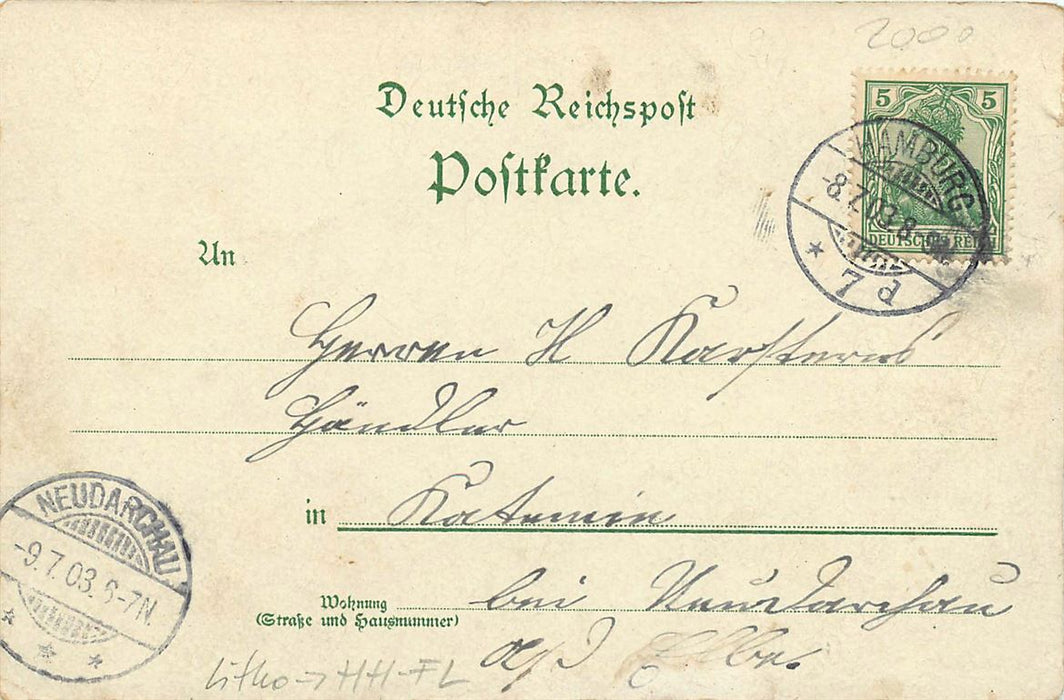 2000
Deutsche Reichspost
Postkarte.
5 5
DEUTSCHES REICH
HAMBURG
-8.7.03.8-9N
* 7 d
An
Herren H Karstens
Händler
in Katemin
bei Neudarchau
a/d Elbe.
Wohnung
(Straße und Hausnummer)
NEUDARCHAU
-9.7.03.6-7N.
* * *
Litho → HH-FL